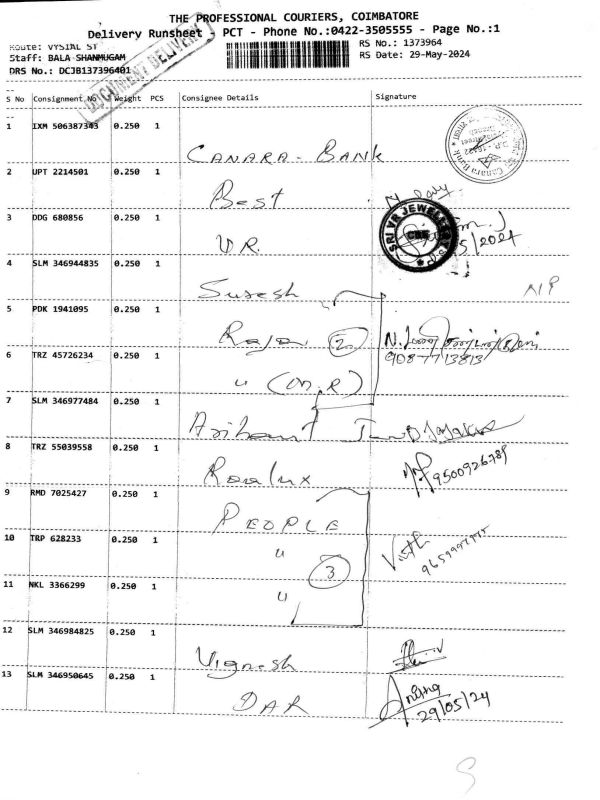 THE PROFESSIONAL COURIERS, COIMBATORE
Delivery Runsheet - PCT - Phone No.:0422-3505555 - Page No.:1
Route: VYSIAL ST
RS No.: 1373964
Staff: BALA SHANMUGAM
RS Date: 29-May-2024
DRS No.: DCJB137396401
DOCUMENT DELIVERY
S No Consignment No Weight PCS Consignee Details Signature
1 IXM 506387343 0.250 1
CANARA - BANK
Canara Bank
2 UPT 2214501 0.250 1
Best
3 DDG 680856 0.250 1
VR.
SRI VR JEWELLERS
CBE
5/2024
4 SLM 346944835 0.250 1
Suresh
N/P
5 PDK 1941095 0.250 1
Raja 2
9087713813
6 TRZ 45726234 0.250 1
u (on.e)
7 SLM 346977484 0.250 1
Arihant
8 TRZ 55039558 0.250 1
Roralux
9500926789
9 RMD 7025427 0.250 1
PEOPLE
10 TRP 628233 0.250 1
u
3
11 NKL 3366299 0.250 1
u
12 SLM 346984825 0.250 1
Vignesh
13 SLM 346950645 0.250 1
DAR
29/05/24